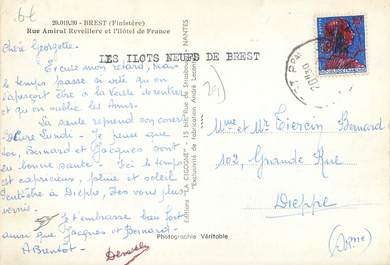 6€
29.019.96 - BREST (Finistère)
Rue Amiral Reveillere et l'Hôtel de France
LES ILOTS NEUFS DE BREST
Chère Georgette.
Excuse mon retard, mais
le temps passe si vite qu'on
s'aperçoit être à la veille de rentrer
et qu'on oublie les Amis.
La poule reprend son cours
Lundi - Je pense que
toi, Bernard et Jacques sont
en bonne santé - Ici le temps
est capricieux, pluie et soleil
Peut-être à Dieppe, êtes vous plus
vernis.
Je t'embrasse bien fort
ainsi que Jacques et Bernard.
A Bientôt -
Denise
Editions "LA CIGOGNE" - 15 bis, Rue de Strasbourg - NANTES
"Exclusivité de fabrication André Leconte"
Photographie Véritable
29
Mme et Mr Tiercin Bernard
102, Grande Rue
Dieppe